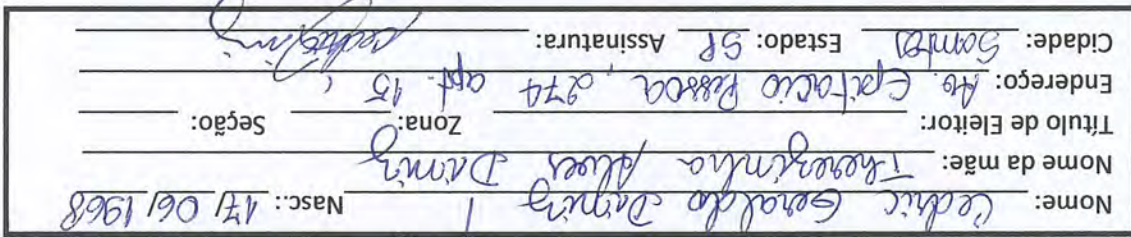 Nome: Cedric Geraldo Daming Nasc.: 17/06/1968
Nome da mãe: Therezinha Alves Daming
Título de Eleitor: Zona: Seção:
Endereço: Av. Epitacio Pessoa, 274 apt. 15
Cidade: Santos Estado: SP Assinatura: